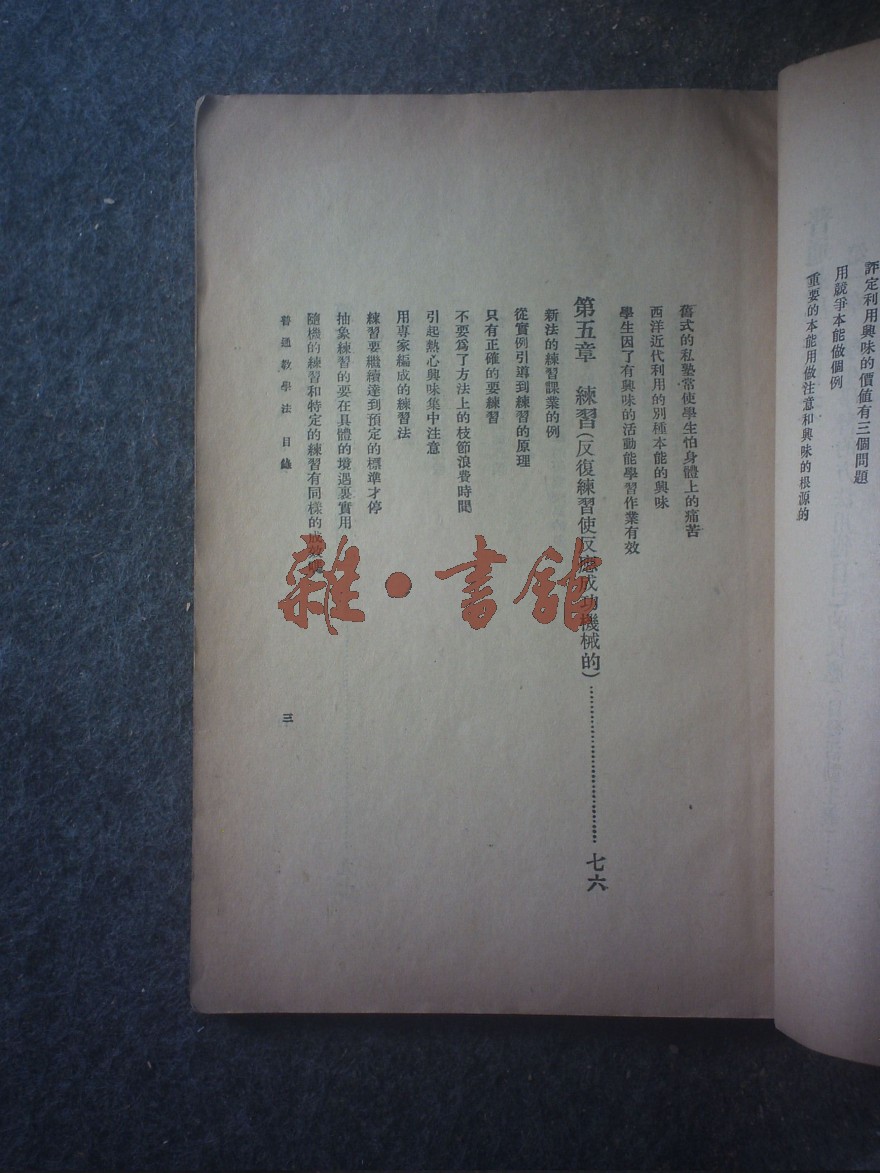 評定利用興味的價值有三個問題
用競爭本能做個例
重要的本能用做注意和興味的根源的
舊式的私塾當使學生怕身體上的痛苦
西洋近代利用的別種本能的興味
學生因了有興味的活動能學習作業有效
第五章　練習(反復練習使反應成功機械的)……………………七六
新法的練習課業的例
從實例引導到練習的原理
只有正確的要練習
不要爲了方法上的枝節浪費時間
引起熱心興味集中注意
用專家編成的練習法
練習要繼續達到預定的標準才停
抽象練習的要在具體的境遇裏實用
隨機的練習和特定的練習有同樣的成效
普通教學法　目錄
三
雜·書館